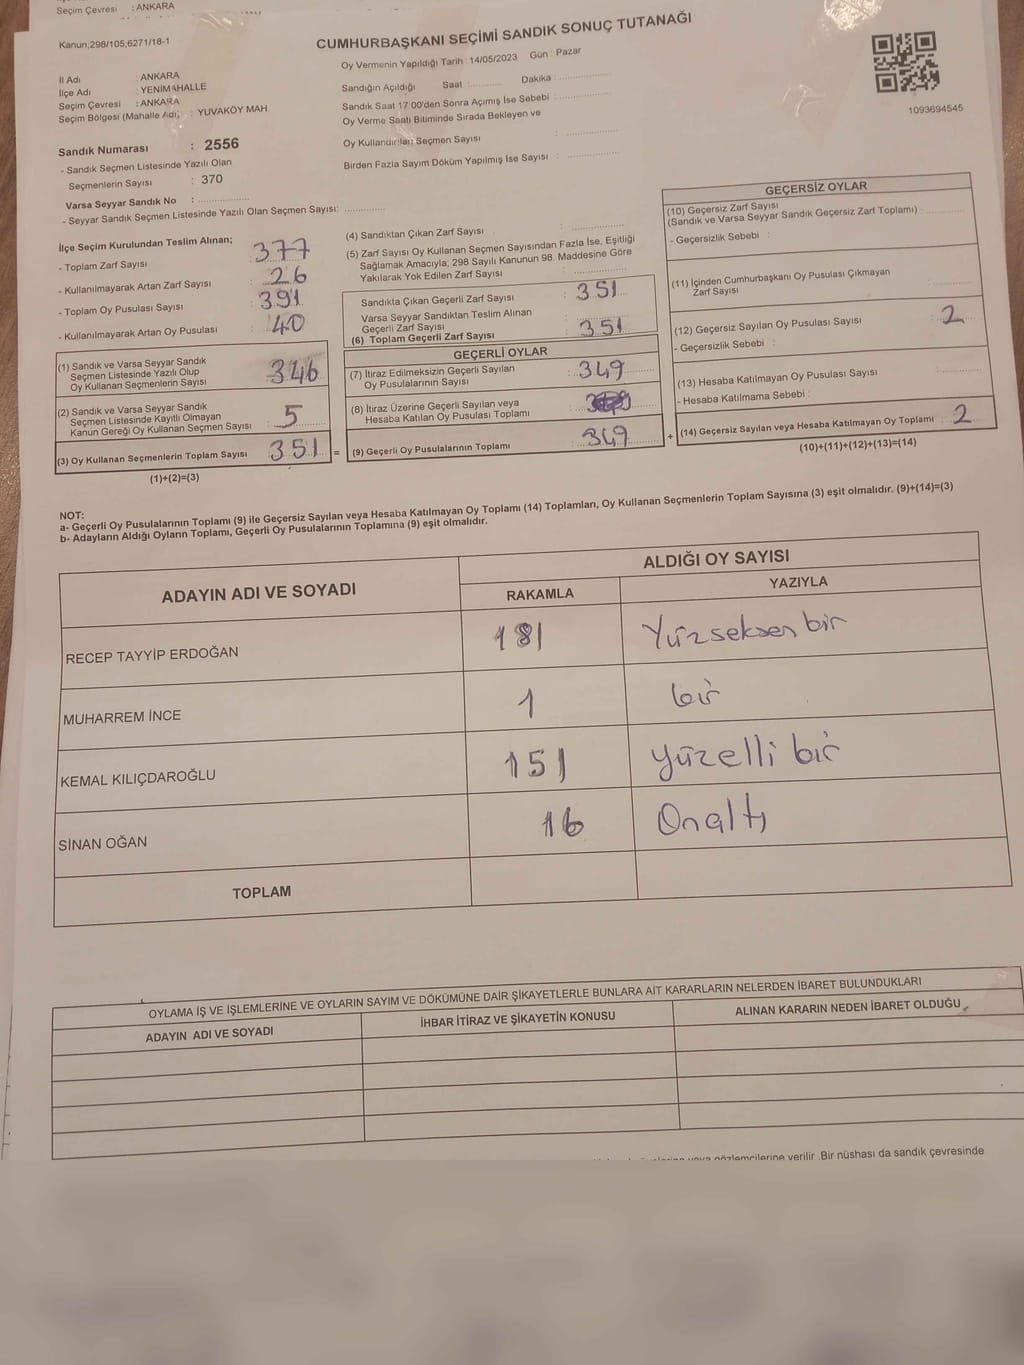 Seçim Çevresi : ANKARA
Kanun;298/105;6271/18-1
CUMHURBAŞKANI SEÇİMİ SANDIK SONUÇ TUTANAĞI
Oy Vermenin Yapıldığı Tarih : 14/05/2023 Gün : Pazar
İl Adı : ANKARA
İlçe Adı : YENİMAHALLE
Seçim Çevresi : ANKARA
Seçim Bölgesi (Mahalle Adı) : YUVAKÖY MAH.
Sandığın Açıldığı Saat : Dakika :
Sandık Saat 17:00'den Sonra Açımış İse Sebebi :
Oy Verme Saati Bitiminde Sırada Bekleyen ve
Oy Kullandırılan Seçmen Sayısı :
Birden Fazla Sayım Döküm Yapılmış İse Sayısı :
1093694545
Sandık Numarası : 2556
- Sandık Seçmen Listesinde Yazılı Olan
Seçmenlerin Sayısı : 370
Varsa Seyyar Sandık No :
- Seyyar Sandık Seçmen Listesinde Yazılı Olan Seçmen Sayısı:
İlçe Seçim Kurulundan Teslim Alınan;
- Toplam Zarf Sayısı : 377
- Kullanılmayarak Artan Zarf Sayısı : 26
- Toplam Oy Pusulası Sayısı : 391
- Kullanılmayarak Artan Oy Pusulası : 40
(1) Sandık ve Varsa Seyyar Sandık
Seçmen Listesinde Yazılı Olup
Oy Kullanan Seçmenlerin Sayısı : 346
(2) Sandık ve Varsa Seyyar Sandık
Seçmen Listesinde Kayıtlı Olmayan
Kanun Gereği Oy Kullanan Seçmen Sayısı : 5
(3) Oy Kullanan Seçmenlerin Toplam Sayısı : 351 =
(1)+(2)=(3)
(4) Sandıktan Çıkan Zarf Sayısı :
(5) Zarf Sayısı Oy Kullanan Seçmen Sayısından Fazla İse, Eşitliği
Sağlamak Amacıyla; 298 Sayılı Kanunun 98. Maddesine Göre
Yakılarak Yok Edilen Zarf Sayısı :
Sandıkta Çıkan Geçerli Zarf Sayısı : 351
Varsa Seyyar Sandıktan Teslim Alınan
Geçerli Zarf Sayısı :
(6) Toplam Geçerli Zarf Sayısı : 351
GEÇERLİ OYLAR
(7) İtiraz Edilmeksizin Geçerli Sayılan
Oy Pusulalarının Sayısı : 349
(8) İtiraz Üzerine Geçerli Sayılan veya
Hesaba Katılan Oy Pusulası Toplamı :
(9) Geçerli Oy Pusulalarının Toplamı : 349 +
GEÇERSİZ OYLAR
(10) Geçersiz Zarf Sayısı
(Sandık ve Varsa Seyyar Sandık Geçersiz Zarf Toplamı) :
- Geçersizlik Sebebi :
(11) İçinden Cumhurbaşkanı Oy Pusulası Çıkmayan
Zarf Sayısı :
(12) Geçersiz Sayılan Oy Pusulası Sayısı : 2
- Geçersizlik Sebebi :
(13) Hesaba Katılmayan Oy Pusulası Sayısı :
- Hesaba Katılmama Sebebi :
(14) Geçersiz Sayılan veya Hesaba Katılmayan Oy Toplamı : 2
(10)+(11)+(12)+(13)=(14)
NOT:
a- Geçerli Oy Pusulalarının Toplamı (9) ile Geçersiz Sayılan veya Hesaba Katılmayan Oy Toplamı (14) Toplamları, Oy Kullanan Seçmenlerin Toplam Sayısına (3) eşit olmalıdır. (9)+(14)=(3)
b- Adayların Aldığı Oyların Toplamı, Geçerli Oy Pusulalarının Toplamına (9) eşit olmalıdır.
ADAYIN ADI VE SOYADI
ALDIĞI OY SAYISI
RAKAMLA YAZIYLA
RECEP TAYYİP ERDOĞAN 181 Yüzseksen bir
MUHARREM İNCE 1 bir
KEMAL KILIÇDAROĞLU 151 yüzelli bir
SİNAN OĞAN 16 Onaltı
TOPLAM
OYLAMA İŞ VE İŞLEMLERİNE VE OYLARIN SAYIM VE DÖKÜMÜNE DAİR ŞİKAYETLERLE BUNLARA AİT KARARLARIN NELERDEN İBARET BULUNDUKLARI
ADAYIN ADI VE SOYADI İHBAR İTİRAZ VE ŞİKAYETİN KONUSU ALINAN KARARIN NEDEN İBARET OLDUĞU
veya gözlemcilerine verilir .Bir nüshası da sandık çevresinde